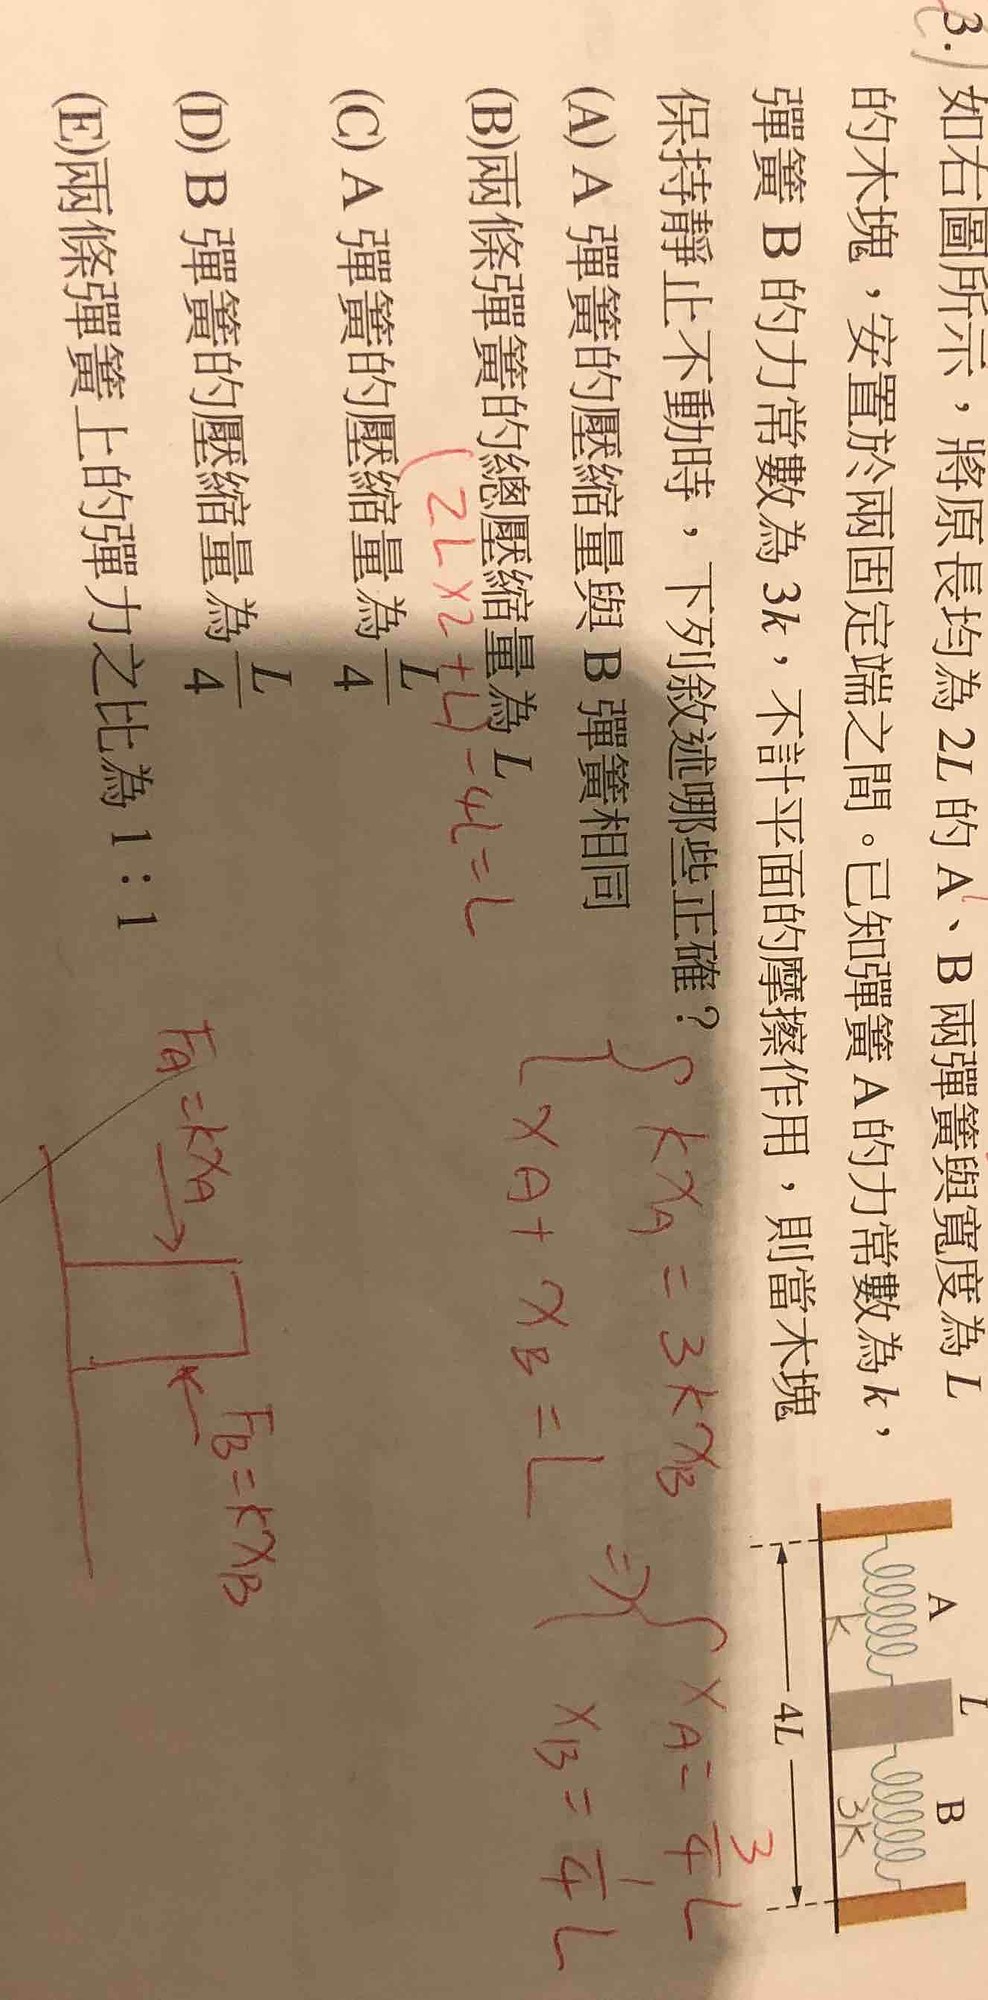 3. 如右圖所示，將原長均為 2L 的 A、B 兩彈簧與寬度為 L
的木塊，安置於兩固定端之間。已知彈簧 A 的力常數為 k，
彈簧 B 的力常數為 3k，不計平面的摩擦作用，則當木塊
保持靜止不動時，下列敘述哪些正確？
(A) A 彈簧的壓縮量與 B 彈簧相同
(B) 兩條彈簧的總壓縮量為 L
(2L×2+L)-4L=L
(C) A 彈簧的壓縮量為 L/4
(D) B 彈簧的壓縮量為 L/4
(E) 兩條彈簧上的彈力之比為 1：1
A L B
k 3k
4L
{ kxA = 3kxB
xA + xB = L
⇒ { xA = 3/4 L
xB = 1/4 L
FA = kxA
FB = kxB